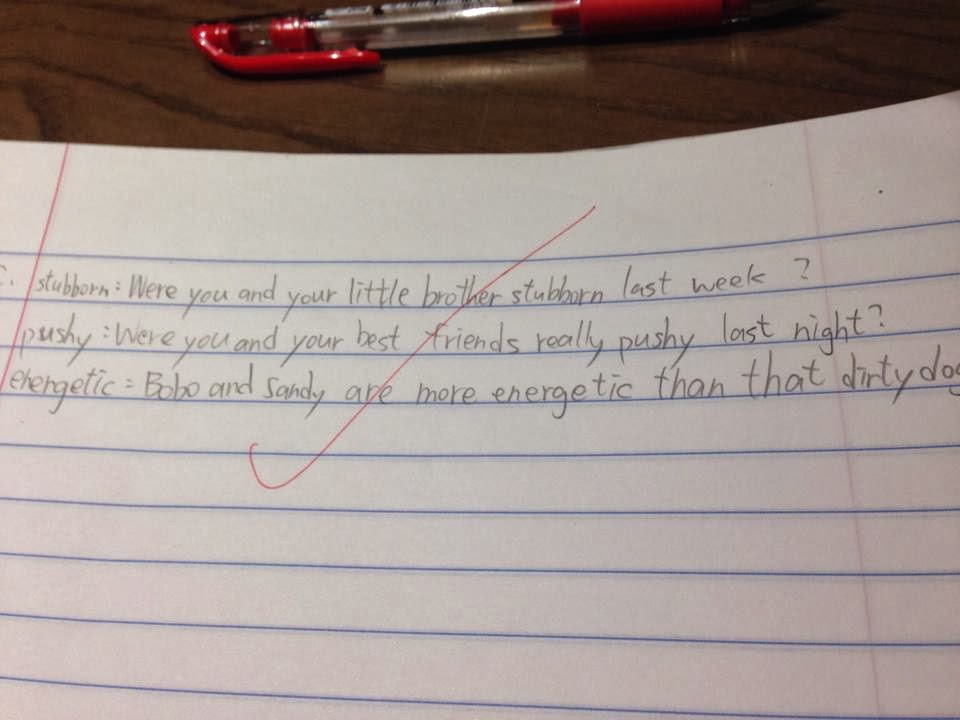 stubborn: Were you and your little brother stubborn last week ?
pushy: Were you and your best friends really pushy last night?
energetic: Bobo and Sandy are more energetic than that dirty dog